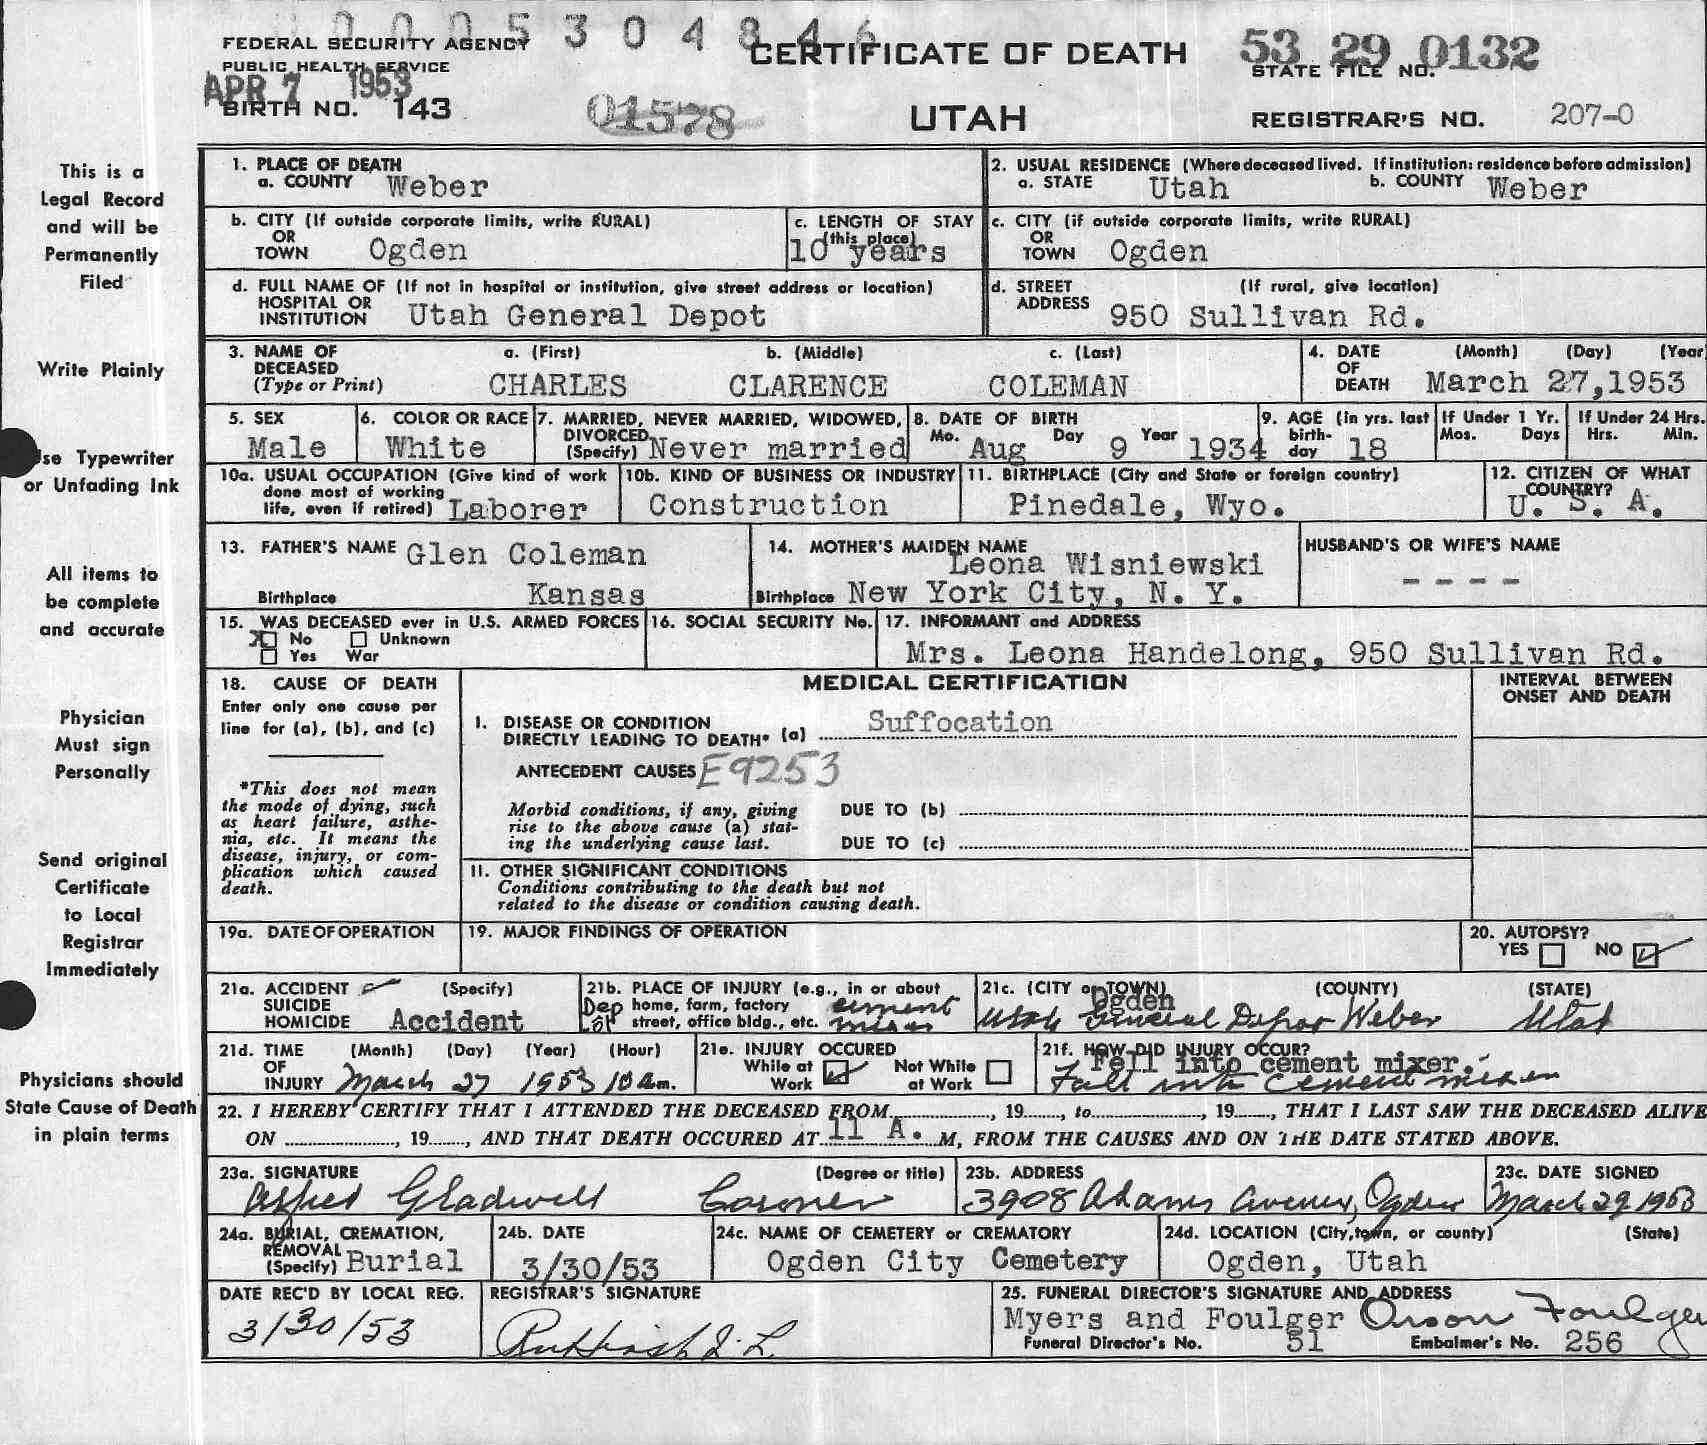 0005304846
FEDERAL SECURITY AGENCY
PUBLIC HEALTH SERVICE
APR 7 1953
BIRTH NO. 143
01578
CERTIFICATE OF DEATH
UTAH
53 29 0132
STATE FILE NO.
REGISTRAR'S NO. 207-0
This is a
Legal Record
and will be
Permanently
Filed
Write Plainly
Use Typewriter
or Unfading Ink
All items to
be complete
and accurate
Physician
Must sign
Personally
Send original
Certificate
to Local
Registrar
Immediately
Physicians should
State Cause of Death
in plain terms
1. PLACE OF DEATH
a. COUNTY Weber
2. USUAL RESIDENCE (Where deceased lived. If institution: residence before admission)
a. STATE Utah b. COUNTY Weber
b. CITY (If outside corporate limits, write RURAL)
OR
TOWN Ogden
c. LENGTH OF STAY
(this place)
10 years
c. CITY (if outside corporate limits, write RURAL)
OR
TOWN Ogden
d. FULL NAME OF (If not in hospital or institution, give street address or location)
HOSPITAL OR
INSTITUTION Utah General Depot
d. STREET (If rural, give location)
ADDRESS 950 Sullivan Rd.
3. NAME OF DECEASED a. (First) b. (Middle) c. (Last)
(Type or Print) CHARLES CLARENCE COLEMAN
4. DATE OF DEATH (Month) (Day) (Year
March 27,1953
5. SEX
Male
6. COLOR OR RACE
White
7. MARRIED, NEVER MARRIED, WIDOWED,
DIVORCED
(Specify) Never married
8. DATE OF BIRTH
Mo. Aug Day 9 Year 1934
9. AGE (in yrs. last
birth-
day 18
If Under 1 Yr.
Mos. Days
If Under 24 Hrs.
Hrs. Min.
10a. USUAL OCCUPATION (Give kind of work
done most of working
life, even if retired) Laborer
10b. KIND OF BUSINESS OR INDUSTRY
Construction
11. BIRTHPLACE (City and State or foreign country)
Pinedale, Wyo.
12. CITIZEN OF WHAT
COUNTRY?
U. S. A.
13. FATHER'S NAME Glen Coleman
Birthplace Kansas
14. MOTHER'S MAIDEN NAME
Leona Wisniewski
Birthplace New York City, N. Y.
HUSBAND'S OR WIFE'S NAME
- - - -
15. WAS DECEASED ever in U.S. ARMED FORCES
X No Unknown
Yes War
16. SOCIAL SECURITY No.
17. INFORMANT and ADDRESS
Mrs. Leona Handelong, 950 Sullivan Rd.
18. CAUSE OF DEATH
Enter only one cause per
line for (a), (b), and (c)
*This does not mean
the mode of dying, such
as heart failure, asthe-
nia, etc. It means the
disease, injury, or com-
plication which caused
death.
MEDICAL CERTIFICATION
INTERVAL BETWEEN
ONSET AND DEATH
I. DISEASE OR CONDITION
DIRECTLY LEADING TO DEATH* (a) Suffocation
ANTECEDENT CAUSES E9253
Morbid conditions, if any, giving
rise to the above cause (a) stat-
ing the underlying cause last.
DUE TO (b)
DUE TO (c)
II. OTHER SIGNIFICANT CONDITIONS
Conditions contributing to the death but not
related to the disease or condition causing death.
19a. DATE OF OPERATION
19. MAJOR FINDINGS OF OPERATION
20. AUTOPSY?
YES NO
21a. ACCIDENT (Specify)
SUICIDE
HOMICIDE Accident
21b. PLACE OF INJURY (e.g., in or about
home, farm, factory
street, office bldg., etc.
Dep
ot
cement
mixer
21c. (CITY or TOWN) (COUNTY) (STATE)
Ogden
Utah General Depot Weber Utah
21d. TIME OF INJURY (Month) (Day) (Year) (Hour)
March 27 1953 10 a.m.
21e. INJURY OCCURED
While at Work Not While at Work
21f. HOW DID INJURY OCCUR?
Fell into cement mixer.
Fall into cement mixer
22. I HEREBY CERTIFY THAT I ATTENDED THE DECEASED FROM, 19, to, 19, THAT I LAST SAW THE DECEASED ALIVE
ON, 19, AND THAT DEATH OCCURED AT 11 A. M, FROM THE CAUSES AND ON THE DATE STATED ABOVE.
23a. SIGNATURE (Degree or title)
Alfred Gladwell Coroner
23b. ADDRESS
3908 Adams Avenue, Ogden
23c. DATE SIGNED
March 29 1953
24a. BURIAL, CREMATION,
REMOVAL
(Specify) Burial
24b. DATE
3/30/53
24c. NAME OF CEMETERY or CREMATORY
Ogden City Cemetery
24d. LOCATION (City, town, or county) (State)
Ogden, Utah
DATE REC'D BY LOCAL REG.
3/30/53
REGISTRAR'S SIGNATURE
25. FUNERAL DIRECTOR'S SIGNATURE AND ADDRESS
Myers and Foulger Orson Foulger
Funeral Director's No. 51 Embalmer's No. 256